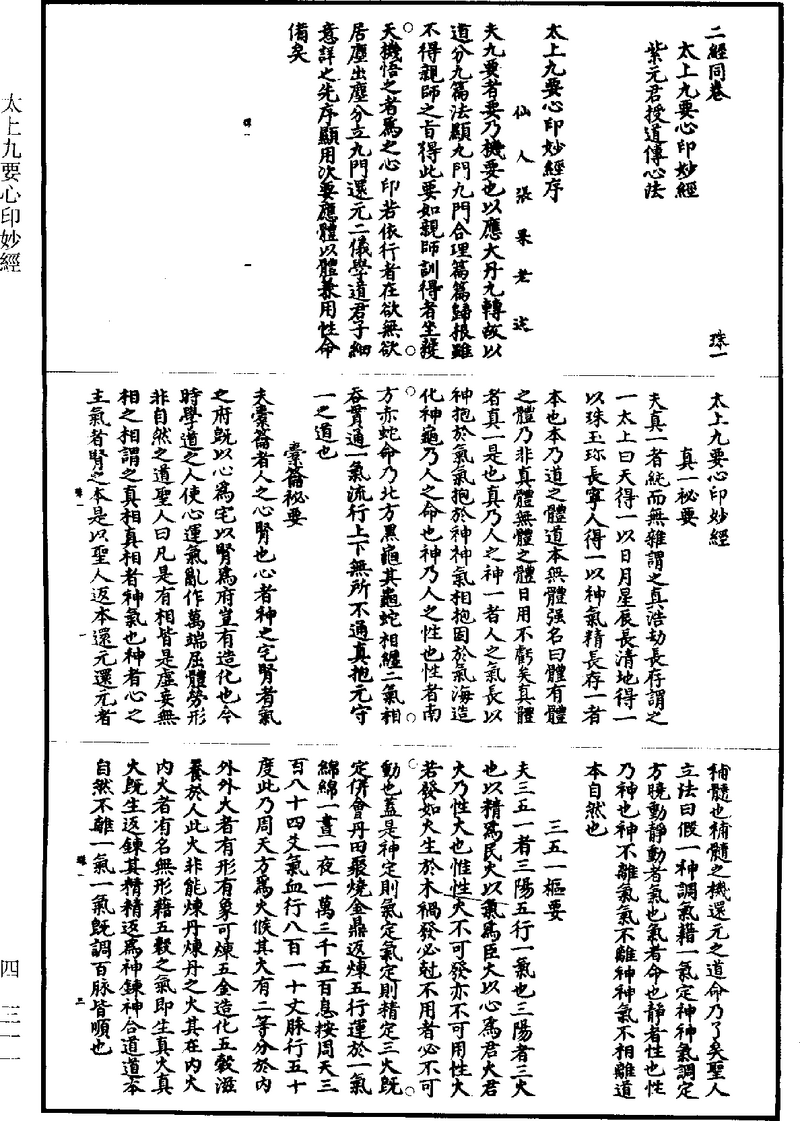 太上九要心印妙經
四 三一一
二經同卷
太上九要心印妙經
紫元君授道傳心法
珠一
太上九要心印妙經序
仙人張果老述
夫九要者要乃機要也以應大丹九轉故以
道分九篇法顯九門九門合理篇篇歸根雖
不得親師之旨得此要如親師訓得者坐獲
天機悟之者爲之心印若依行者在欲無欲
居塵出塵分立九門還元二儀學道君子細
意詳之先序顯用次要應體以體兼用性命
備矣
太上九要心印妙經
真一秘要
夫真一者純而無雜謂之真浩劫長存謂之
一太上曰天得一以日月星辰長清地得一
以珠玉珍長寧人得一以神氣精長存一者
本也本乃道之體道本無體强名曰體有體
之體乃非真體無體之體日用不虧矣真體
者真一是也真乃人之神一者人之氣長以
神抱於氣氣抱於神神氣相抱固於氣海造
化神龜乃人之命也神乃人之性也性者南
方赤蛇命乃北方黑龜其龜蛇相纏二氣相
吞貫通一氣流行上下無所不通真抱元守
一之道也
橐籥秘要
夫橐籥者人之心腎也心者神之宅腎者氣
之府旣以心爲宅以腎爲府豈有造化也今
時學道之人使心運氣亂作萬端屈體勞形
非自然之道聖人曰凡是有相皆是虛妄無
相之相謂之真相真相者神氣也神者心之
主氣者腎之本是以聖人返本還元還元者
補髓也補髓之機還元之道命乃了矣聖人
立法曰假一神調氣藉一氣定神神氣調定
方曉動靜動者氣也氣者命也靜者性也性
乃神也神不離氣氣不離神神氣不相離道
本自然也
三五一樞要
夫三五一者三陽五行一氣也三陽者三火
也以精爲民火以氣爲臣火以心爲君火君
火乃性火也惟性火不可發亦不可用性火
若發如火生於木禍發必尅不用者必不可
動也蓋是神定則氣定氣定則精定三火旣
定併會丹田聚燒金鼎返煉五行運於一氣
綿綿一晝一夜一萬三千五百息按周天三
百八十四爻氣血行八百一十丈脉行五十
度此乃周天方爲火候其火有二等分於內
外外火者有形有象可煉五金造化五穀滋
養於人此火非能煉丹煉丹之火其在內火
內火者有名無形藉五穀之氣即生真火真
火旣生返鍊其精精返爲神鍊神合道道本
自然不離一氣一氣旣調百脉皆順也